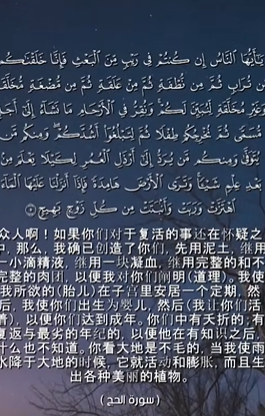 يَٰٓأَيُّهَا ٱلنَّاسُ إِن كُنتُمْ فِى رَيْبٍ مِّنَ ٱلْبَعْثِ فَإِنَّا خَلَقْنَٰكُم
مِّن تُرَابٍ ثُمَّ مِن نُّطْفَةٍ ثُمَّ مِنْ عَلَقَةٍ ثُمَّ مِن مُّضْغَةٍ مُّخَلَّقَةٍ
وَغَيْرِ مُخَلَّقَةٍ لِّنُبَيِّنَ لَكُمْ وَنُقِرُّ فِى ٱلْأَرْحَامِ مَا نَشَآءُ إِلَىٰٓ أَجَلٍ
مُّسَمًّى ثُمَّ نُخْرِجُكُمْ طِفْلًا ثُمَّ لِتَبْلُغُوٓا۟ أَشُدَّكُمْ وَمِنكُم مَّن
يُتَوَفَّىٰ وَمِنكُم مَّن يُرَدُّ إِلَىٰٓ أَرْذَلِ ٱلْعُمُرِ لِكَيْلَا يَعْلَمَ مِنۢ
بَعْدِ عِلْمٍ شَيْـًٔا وَتَرَى ٱلْأَرْضَ هَامِدَةً فَإِذَآ أَنزَلْنَا عَلَيْهَا ٱلْمَآءَ
ٱهْتَزَّتْ وَرَبَتْ وَأَنۢبَتَتْ مِن كُلِّ زَوْجٍۭ بَهِيجٍ
众人啊！如果你们对于复活的事还在怀疑之
中，那么，我确已创造了你们，先用泥土，继用
一小滴精液，继用一块凝血，继用完整的和不
完整的肉团，以便我对你们阐明(道理)，我使
我所欲的(胎儿)在子宫里安居一个定期，然
后，我使你们出生为婴儿，然后(我让你们活
着)，以便你们达到成年。你们中有夭折的；有
复返与最劣的年纪的，以便他在有知识之后，
什么也不知道。你看大地是不毛的，当我使雨
水降于大地的时候，它就活动和膨胀，而且生
出各种美丽的植物。
( سورة الحج )